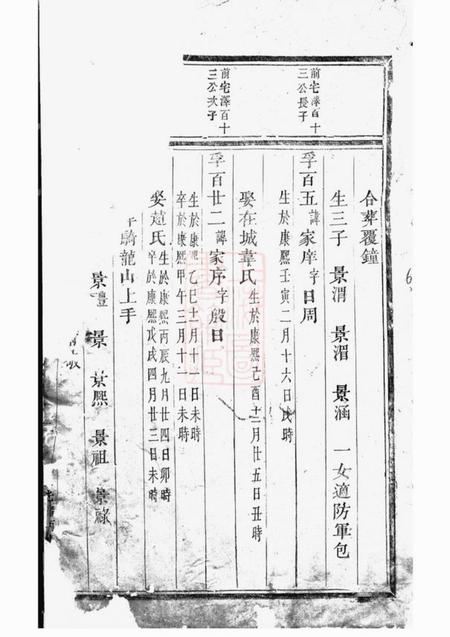 合葬覆鐘
生三子 景渭 景湄 景涵 一女適防軍包
前宅澤百十
三公長子
孚百五諱家庠字日周
生於康熙壬寅二月十六日戌時
娶在城韋氏生於康熙己酉十二月廿五日丑時
前宅澤百十
三公次子
孚百廿二諱家序字殷日
生於康熙乙巳十一月十一日未時
卒於康熙甲午三月十一日未時
娶范氏生於康熙丙辰九月廿四日卯時
卒於康熙戊戌四月廿三日未時
于騎龍山上手
景灃 景 景熙 景祖 景祿